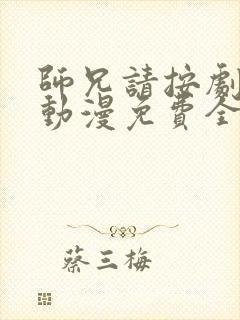 師兄請按劇
動漫免費全
蔡三梅